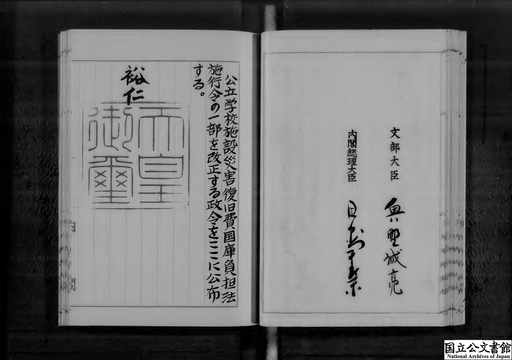 文部大臣 奥野誠亮
内閣総理大臣 田中角榮
公立学校施設災害復旧費国庫負担法
施行令の一部を改正する政令をここに公布
する。
裕仁
天皇
御璽
国立公文書館
National Archives of Japan